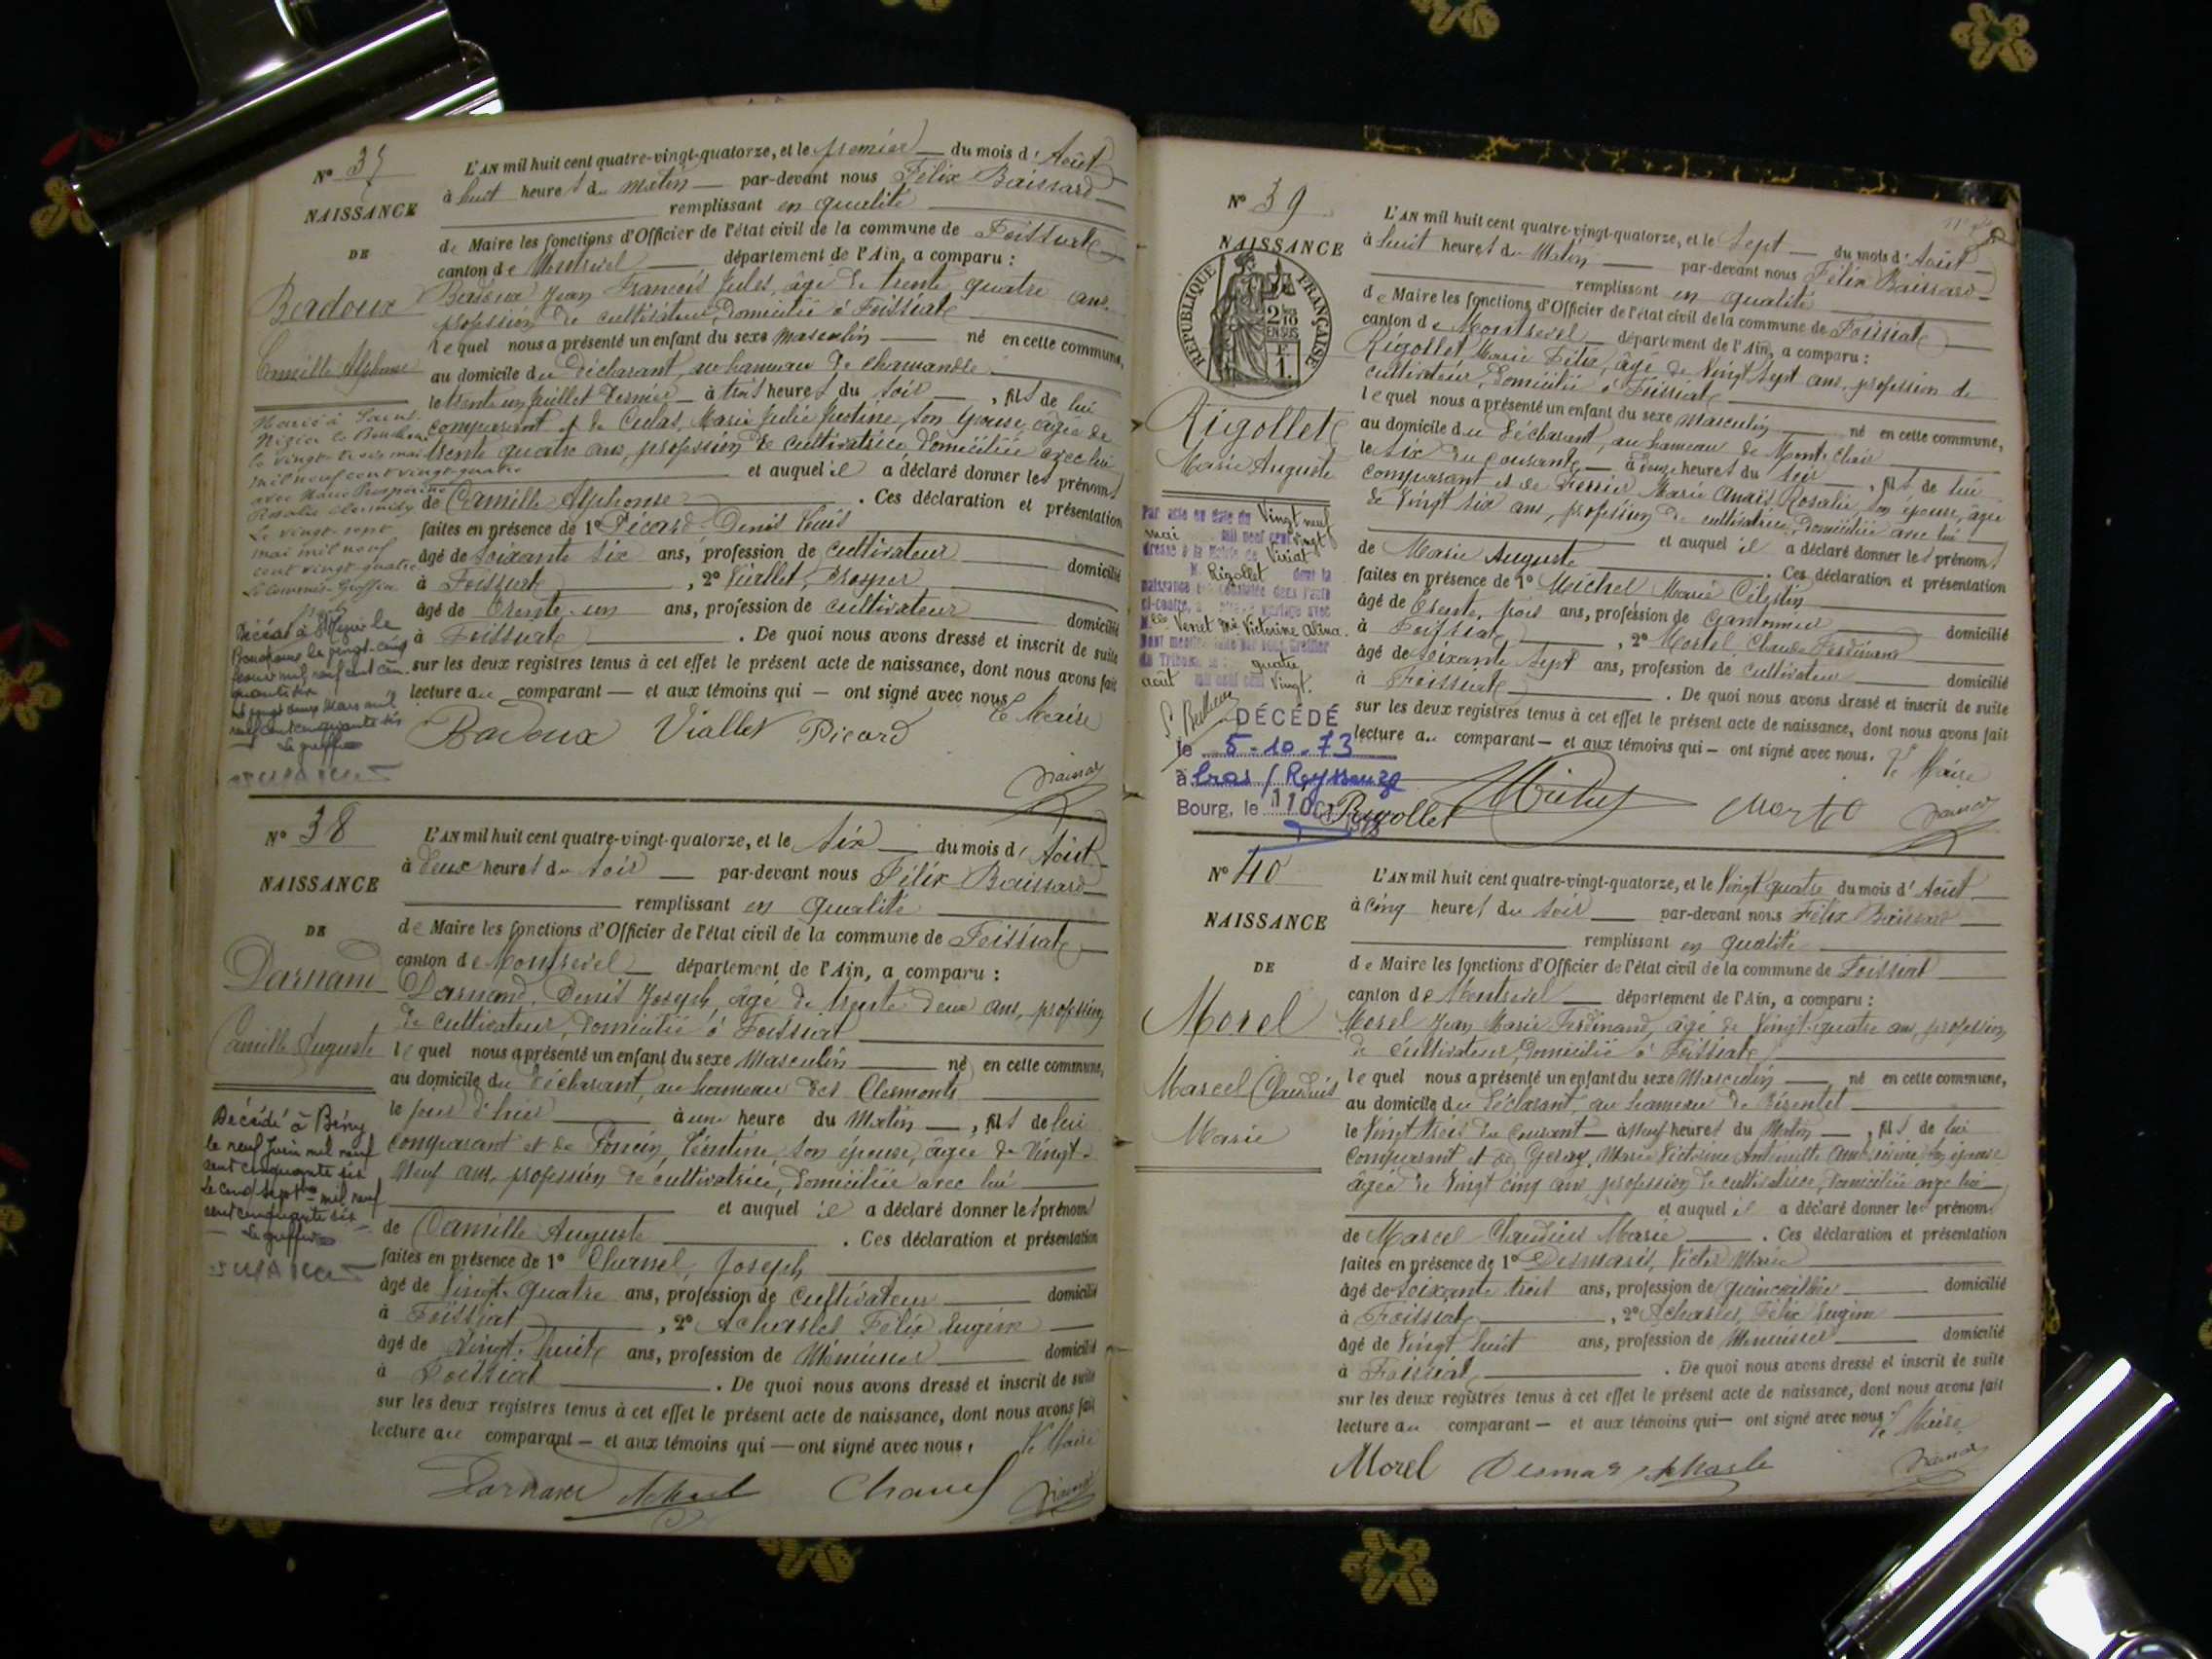 N° 37
NAISSANCE
DE
Badoux
Camille Alphonse
Marié à Saint
Nizier le Bouchoux
le vingt-trois mai
mil neuf cent vingt-quatre
avec Marie Prosperine
Rosalie
Le vingt-sept
mai mil neuf
cent vingt quatre
Le Commis-Greffier
Décédé à St Nizier le
Bouchoux le vingt-cinq
février mil neuf cent cin-
quante six
le vingt deux Mars mil
neuf cent cinquante six
Le greffier
L'AN mil huit cent quatre-vingt-quatorze, et le premier du mois d' Août
à huit heures du matin par-devant nous Félix Baissard
remplissant en qualité
de Maire les fonctions d'Officier de l'état civil de la commune de Foissiat
canton de Montrevel département de l'Ain, a comparu :
Badoux Jean François Jules, âgé de trente quatre ans,
profession de cultivateur, domicilié à Foissiat
lequel nous a présenté un enfant du sexe masculin né en cette commune,
au domicile du déclarant, au hameau de
le trente un Juillet dernier à trois heures du soir, fils de lui
comparant et de Culas, Marie Julie Justine, son épouse, âgée de
trente quatre ans, profession de cultivatrice, domiciliée avec lui
et auquel il a déclaré donner les prénoms
de Camille Alphonse. Ces déclaration et présentation
faites en présence de 1° Picard Denis Louis
âgé de soixante six ans, profession de cultivateur domicilié
à Foissiat, 2° Viallet, Prosper
âgé de trente-un ans, profession de cultivateur domicilié
à Foissiat. De quoi nous avons dressé et inscrit de suite
sur les deux registres tenus à cet effet le présent acte de naissance, dont nous avons fait
lecture au comparant — et aux témoins qui — ont signé avec nous
Le Maire
Badoux Viallet Picard
N° 38
NAISSANCE
DE
Darnand
Camille Auguste
Décédé à Bény
le neuf Juin mil neuf
cent cinquante six
Le cinq septbre mil neuf
cent cinquante six
Le greffier
L'AN mil huit cent quatre-vingt-quatorze, et le six du mois d' Août
à deux heures du soir par-devant nous Félix Baissard
remplissant en qualité
de Maire les fonctions d'Officier de l'état civil de la commune de Foissiat
canton de Montrevel département de l'Ain, a comparu :
Darnand, Denis Joseph, âgé de trente deux ans, profession
de cultivateur, domicilié à Foissiat
lequel nous a présenté un enfant du sexe Masculin né en cette commune,
au domicile du déclarant, au hameau des Clermonts
le jour d'hier à une heure du Matin, fils de lui
comparant et de Poncin, Léontine, son épouse, âgée de Vingt-
neuf ans, profession de cultivatrice, domiciliée avec lui
et auquel il a déclaré donner les prénoms
de Camille Auguste. Ces déclaration et présentation
faites en présence de 1° Charnel, Joseph
âgé de Vingt-quatre ans, profession de cultivateur domicilié
à Foissiat, 2° Acharles Félix Eugène
âgé de Vingt-huit ans, profession de Menuisier domicilié
à Foissiat. De quoi nous avons dressé et inscrit de suite
sur les deux registres tenus à cet effet le présent acte de naissance, dont nous avons fait
lecture au comparant — et aux témoins qui — ont signé avec nous,
Le Maire
Darnand
N° 39
NAISSANCE
REPUBLIQUE FRANÇAISE
2/10 EN SUS
Rigollet
Marie Auguste
Par acte en date du Vingt neuf
mai mil neuf cent vingt
dressé à la Mairie de Viriat
M. Rigollet dont la
naissance est constatée dans l'acte
ci-contre, a contracté mariage avec
Melle Venet Mie Victorine Alina.
Dont mention faite par nous Greffier
du Tribunal le quatre
août mil neuf cent Vingt.
DÉCÉDÉ
le 5-10-73
à Cras / Reyssouze
Bourg, le 11 OCT 1973
L'AN mil huit cent quatre-vingt-quatorze, et le Sept du mois d' Août
à huit heures du Matin par-devant nous Félix Baissard
remplissant en qualité
de Maire les fonctions d'Officier de l'état civil de la commune de Foissiat
canton de Montrevel département de l'Ain, a comparu :
Rigollet, Marie Félix, âgé de Vingt sept ans, profession de
cultivateur, domicilié à Foissiat
lequel nous a présenté un enfant du sexe masculin né en cette commune,
au domicile du déclarant, au hameau de Mont-Clair
le six du courant à onze heures du soir, fils de lui
comparant et de Perrier Marie Anaïs Rosalie, son épouse, âgée
de Vingt six ans, profession de cultivatrice, domiciliée avec lui
et auquel il a déclaré donner les prénoms
de Marie Auguste. Ces déclaration et présentation
faites en présence de 1° Michel Marie Célestin
âgé de trente trois ans, profession de Cantonnier domicilié
à Foissiat, 2° Mortel Claude Ferdinand
âgé de soixante sept ans, profession de cultivateur domicilié
à Foissiat. De quoi nous avons dressé et inscrit de suite
sur les deux registres tenus à cet effet le présent acte de naissance, dont nous avons fait
lecture au comparant — et aux témoins qui — ont signé avec nous.
Le Maire
Rigollet
N° 40
NAISSANCE
DE
Morel
Marcel Claudius
Marie
L'AN mil huit cent quatre-vingt-quatorze, et le Vingt quatre du mois d' Août
à cinq heures du soir par-devant nous Félix Baissard
remplissant en qualité
de Maire les fonctions d'Officier de l'état civil de la commune de Foissiat
canton de Montrevel département de l'Ain, a comparu :
Morel Jean Marie Ferdinand, âgé de Vingt-quatre ans, profession
de cultivateur, domicilié à Foissiat
lequel nous a présenté un enfant du sexe Masculin né en cette commune,
au domicile du déclarant, au hameau de
le Vingt trois du courant à neuf heures du Matin, fils de lui
comparant et de Marie Victorine Antoinette son épouse
âgée de Vingt cinq ans profession de cultivatrice, domiciliée avec lui
et auquel il a déclaré donner les prénoms
de Marcel Claudius Marie. Ces déclaration et présentation
faites en présence de 1° Desmaris, Victor Marie
âgé de soixante trois ans, profession de quincaillier domicilié
à Foissiat, 2° Acharles, Félix Eugène
âgé de Vingt huit ans, profession de Menuisier domicilié
à Foissiat. De quoi nous avons dressé et inscrit de suite
sur les deux registres tenus à cet effet le présent acte de naissance, dont nous avons fait
lecture au comparant — et aux témoins qui — ont signé avec nous
Le Maire
Morel